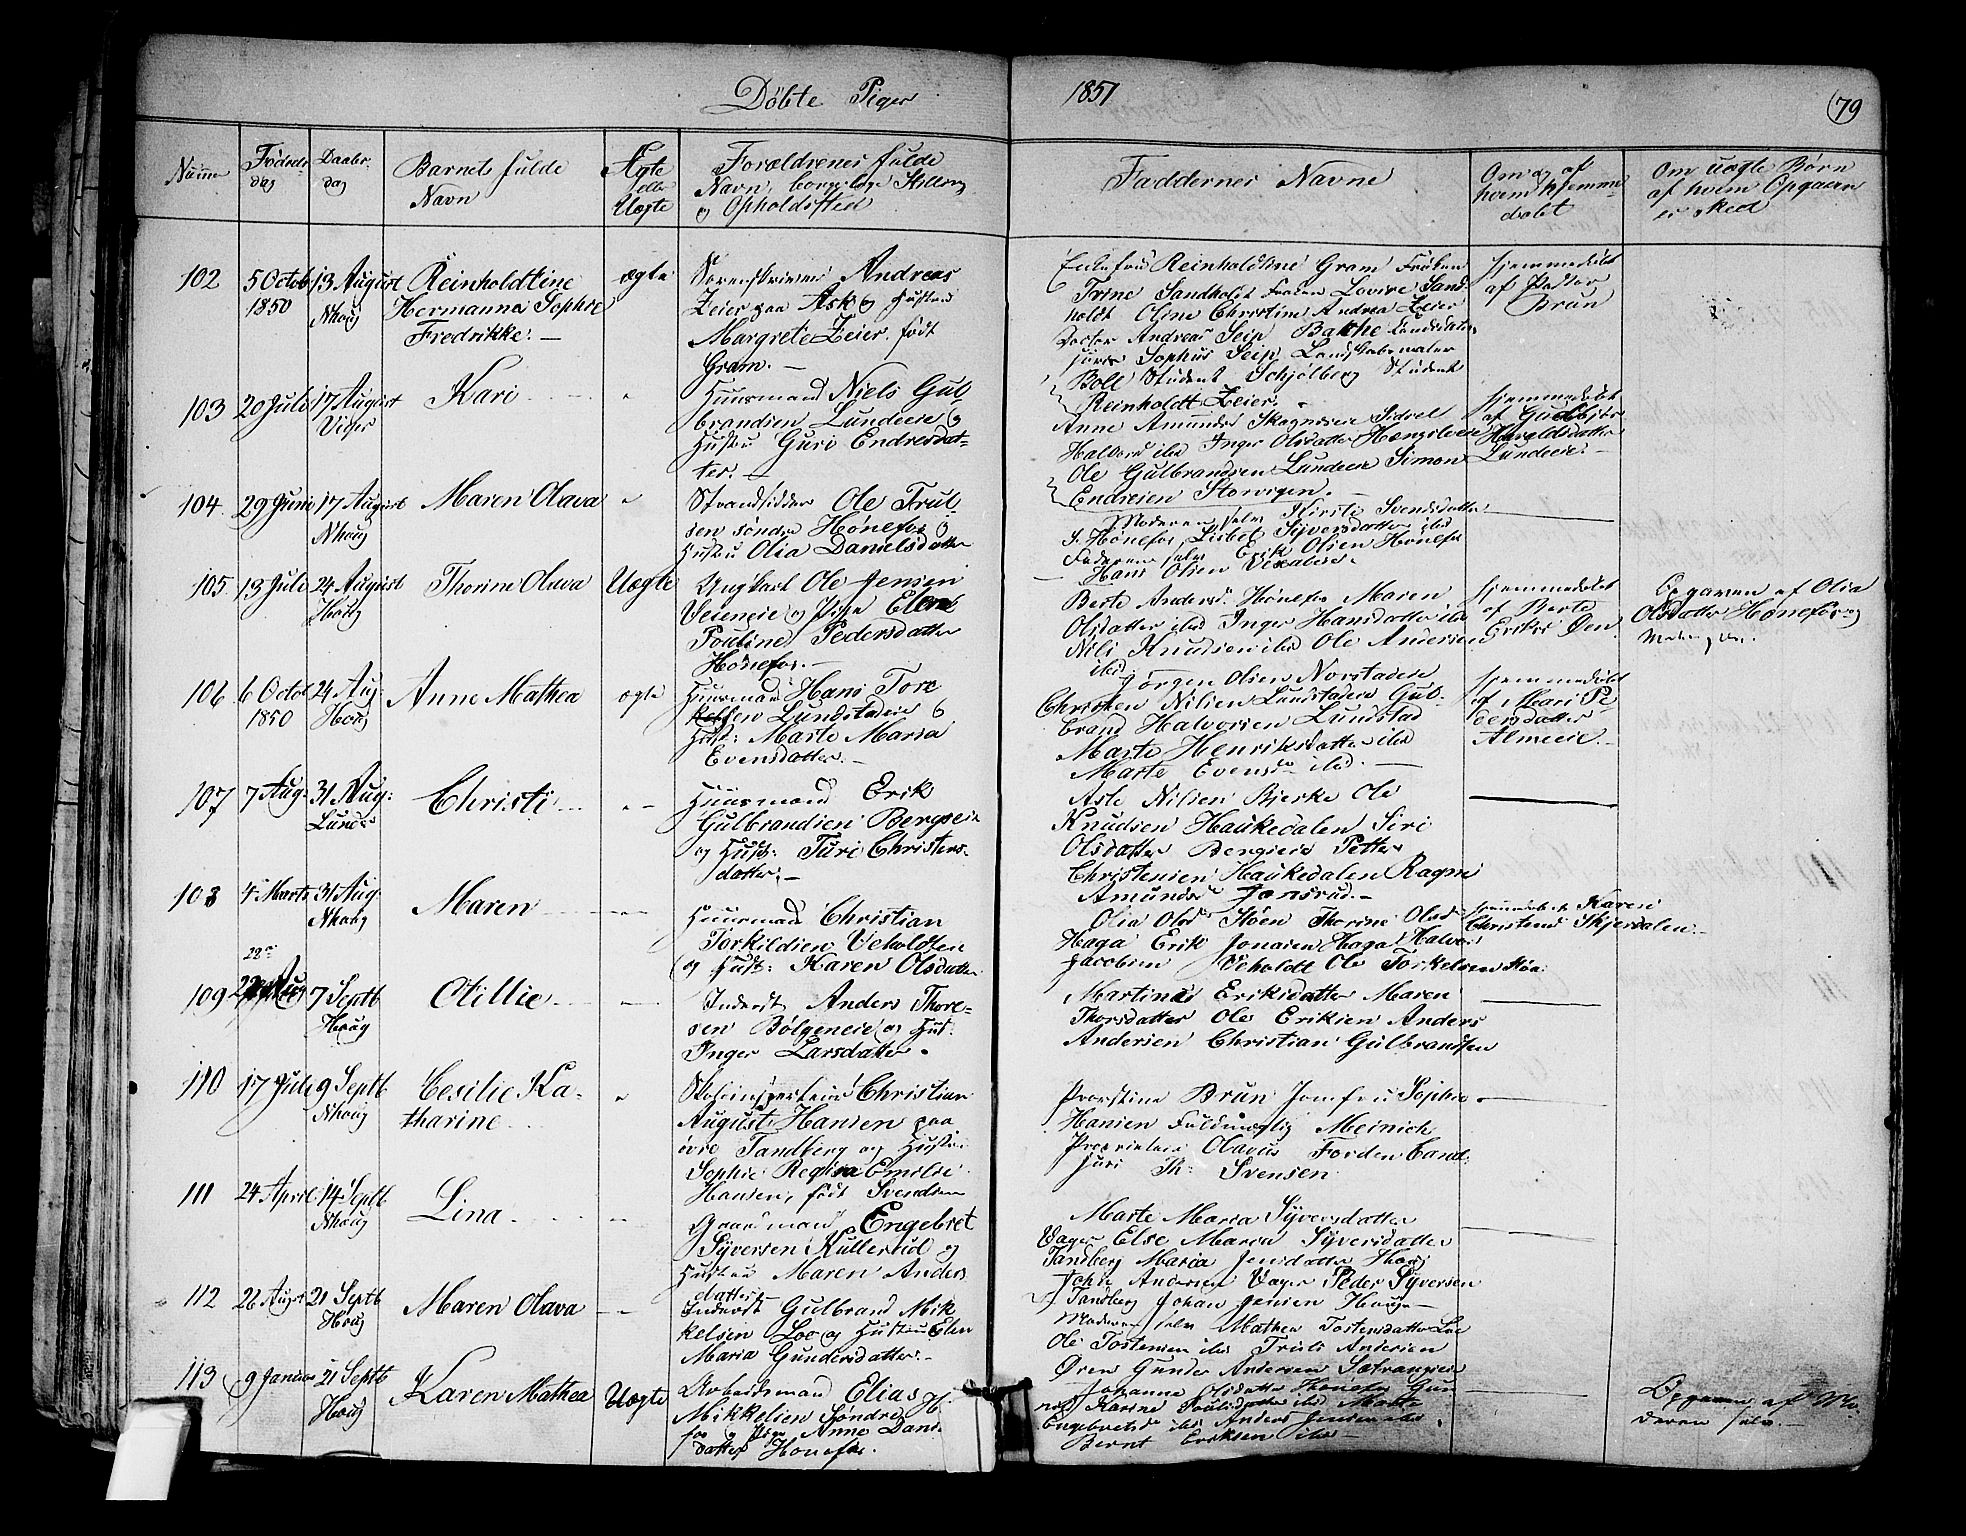 Döbte Piger
1851
79
Numer
Fødsels-
dag
Daabs-
dag
Barnets fulde
Navn
Ægte
eller
Uægte
Forældrenes fulde
Navn, borgerlige Stilling
og Opholdssted
Faddernes Navne
Om og af
hvem hjemme-
døbt
Om uægte Børn
af hvem Opgaven
er skeet
102
5 Octob
1850
13 August
Nhoug
Reinholdtine
Hermanna Sophie
Fredrikke. —
ægte
Sorenskriver Andreas
Zeier paa Ask og Hustru
Margrete Zeier, født
Gram. —
Enkefru Reinholdtine Gram Frøken
Trine Sandholdt Frøken Lovise Sand-
holdt Oline Christine Andrea Zeier
Doctor Andreas Seip Bakke
Sophus Seip
Boll Student Schjölberg Student
Reinholdt Zeier.
hjemmedøbt
af Pastor
Brun
103
20 Juli
17 August
Viger
Kari
"
Huusmand Niels Gul
brandsen Lundeie og
Hustru Guri Endresdat-
ter. —
Anne Amunds Skognseie Sidsel
Halvors ibd Inger Olsdatter Hængsleeie
Ole Gulbrandsen Lundeie Simon
Endresen Storvigen. —
hjemmedøbt
af Gulbjør
Haraldsdatter
Lundeeie. —
104
29 Juni
17 August
Nhoug
Maren Olava
"
Strandsidder Ole Trul
sen søndre Hönefos og
Hustru Olia Danielsdatter
Moderen selv Kirsti Svendsdatter
S. Hönefos Lisbet Syversdatter ibd
Faderen selv Erik Olsen Hönefos
Hans Olsen
105
13 Juli
24 August
Houg
Thorine Olava
Uægte
Ungkarl Ole Jensen
Veieneie og Pige Elen
Pouline Pedersdatter
Hönefos. —
Berte Andersd. Hönefos Maren
Olsdatter ibd Inger Hansdatter ibd
Nils Knudsen ibd Ole Andersen
ibd
hjemmedøbt
af Berte
Eriksd Öen.
Opgaven af Olia
Olsdatter Hönefos og
106
6 Octob
1850
24 Aug:
Houg
Anne Mathea
ægte
Huusmand Hans Tore
sen Lundstadeie og
Hust: Marte Maria
Evensdatter. —
Jörgen Olsen Norstadeie
Christen Nilsen Lundstadeie Gul-
brand Halvorsen Lundstad
Marte Henriksdatter ibd
Marte Evensdr ibd. —
hjemmedøbt
af Mari Pe
dersdatter
Almeeie. —
107
7 Aug:
31 Aug:
Lunde
Christi
"
Huusmand Erik
Gulbrandsen Bergseie
og Hust: Turi Christens-
datter. —
Asle Nilsen Bjerke Ole
Knudsen Haukedalen Siri
Olsdatter Bergseie Petter
Christensen Haukedalen Ragni
Amundsdr Jonsrud. —
108
4 Marts
31 Aug
Nhoug
Maren
"
Huusmand Christian
Torkildsen Veholdten
og Hust: Karen Olsdatter
Olia Olsd Höen Thorine Olsd
Haga Erik Jonasen Haga Halvor
Jacobsen Veholdt Ole Torkelsen
Karen
Christensd Skjerdalen. —
109
28
7 Septb
Houg
Oillie
"
Inderst Anders Thore-
sen Bølgeneie og Hust:
Inger Larsdatter.
Martina Eriksdatter Maren
Thorsdatter Ole Eriksen Anders
Andersen Christian Gulbrandsen
110
17 Juli
9 Septb
Nhoug
Cesilie Ka-
tharine
"
Christian
August Hansen paa
övre Tandberg og Hustru
Sophie Regina Emilie
Hansen, født Svendsen
Provstine Brun Jomfru Sophie
Hansen Fuldmægtig Meinich
Proprietær Olavus Forden Cand:
Juri Th: Svensen
111
24 April
14 Septb
Nhoug
Lina
"
Gaardmand Engebret
Syversen Kullerud og
Hustru Maren Anders
datter
Marte Maria Syversdatter
Vager Else Maria Syversdatter
Tandberg Maria Jensdatter Houg
Andersen Vager Peder Syversen
Tandberg Johan Jensen Houg —
112
26 Augst
21 Septb
Houg
Maren Olava
"
Inderst Gulbrand Mik
kelsen Loe og Hustru Elen
Maria Gundersdatter. —
Moderen selv Mathea Tostensdatter Loe
Ole Tostensen ibd Andersen
Ören Gunder Andersen
113
9 Januar
21 Septb
Houg
Karen Mathea
Uægte
Arbeidsmand Elias
Mikkelsen Söndre H.
fos og Pige Anne Dani
datter Honefos.
Johanne Olsdatter Hönefos Gun
Karine Poulsdatter ibd Marte
Engebretsd ibd Anders Jensen ibd
Bernt Eriksen ibd
Opgaven af Mo-
deren selv. —